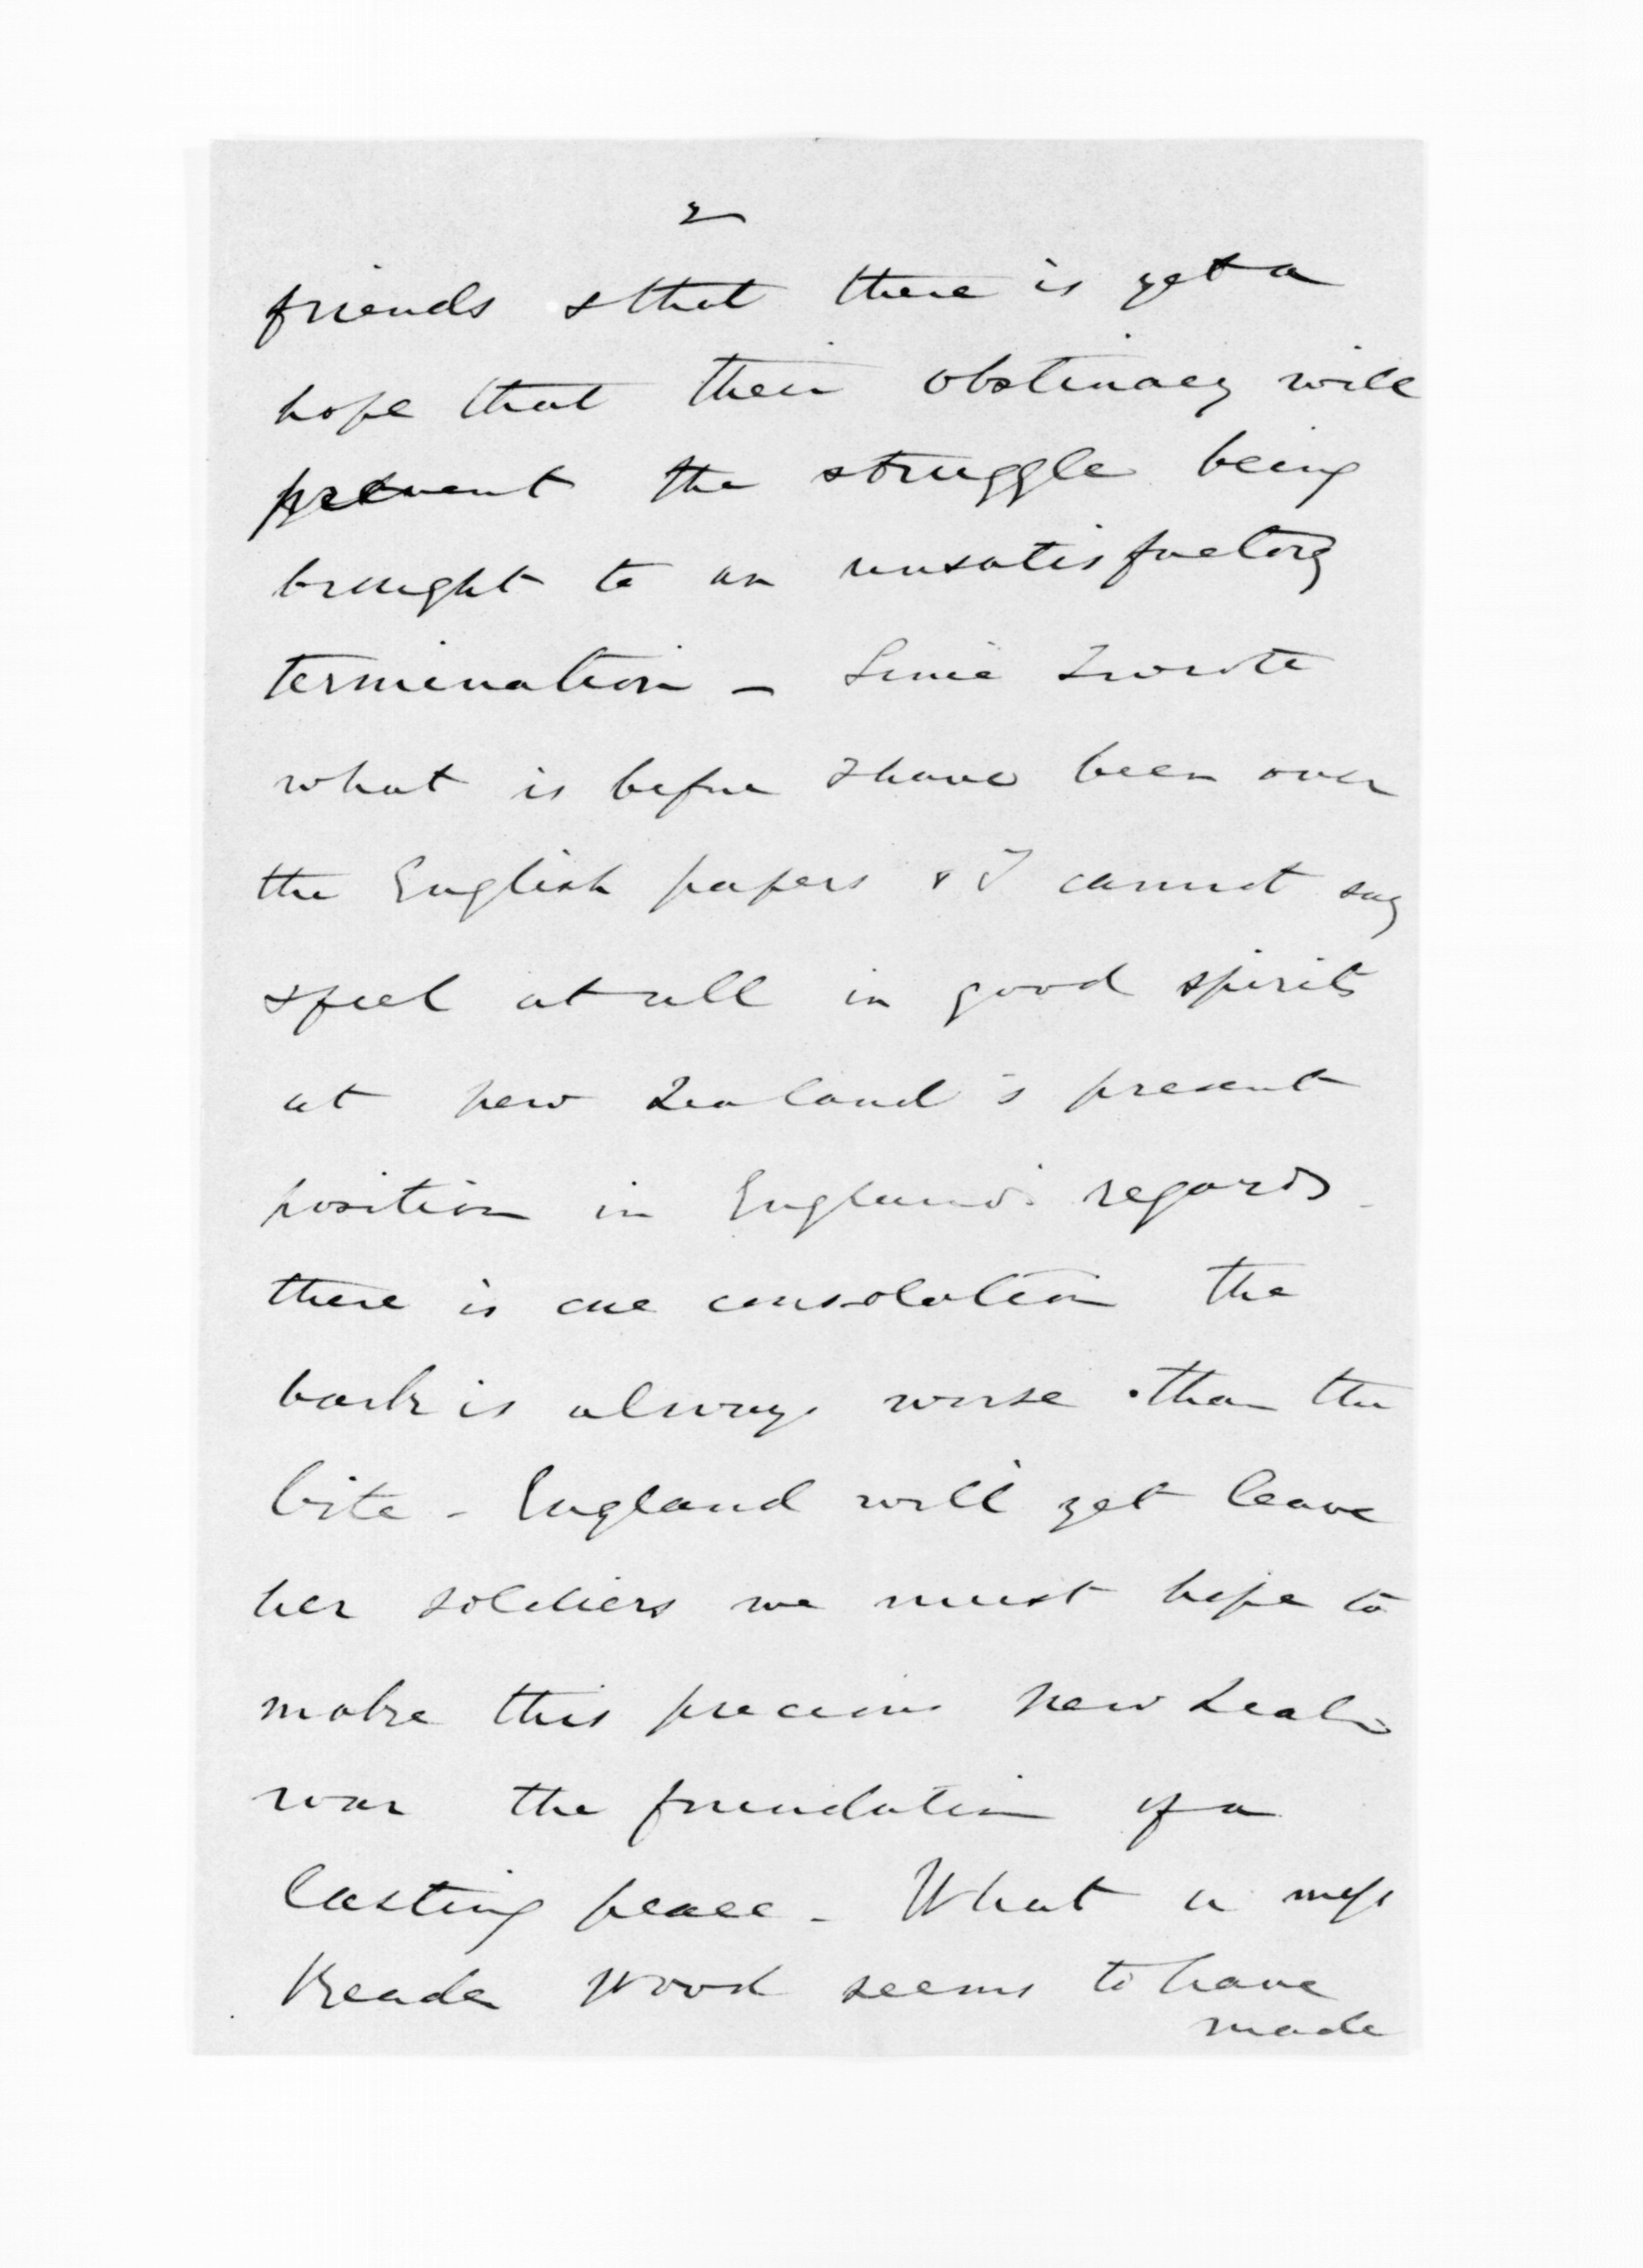 2
friends & that there is yet a
hope that their obstinacy will
prevent the struggle being
brought to an unsatisfactory
termination - Since I wrote
what is before I have been over
the English papers & I cannot say
I feel at all in good spirits
at New Zealand's present
position in England's regards -
there is one consolation the
bark is always worse than the
bite - England will yet leave
her soldiers we must hope to
make this precious New Zeald
war the foundation of a
lasting peace - What a mess
Reader Wood seems to have
made